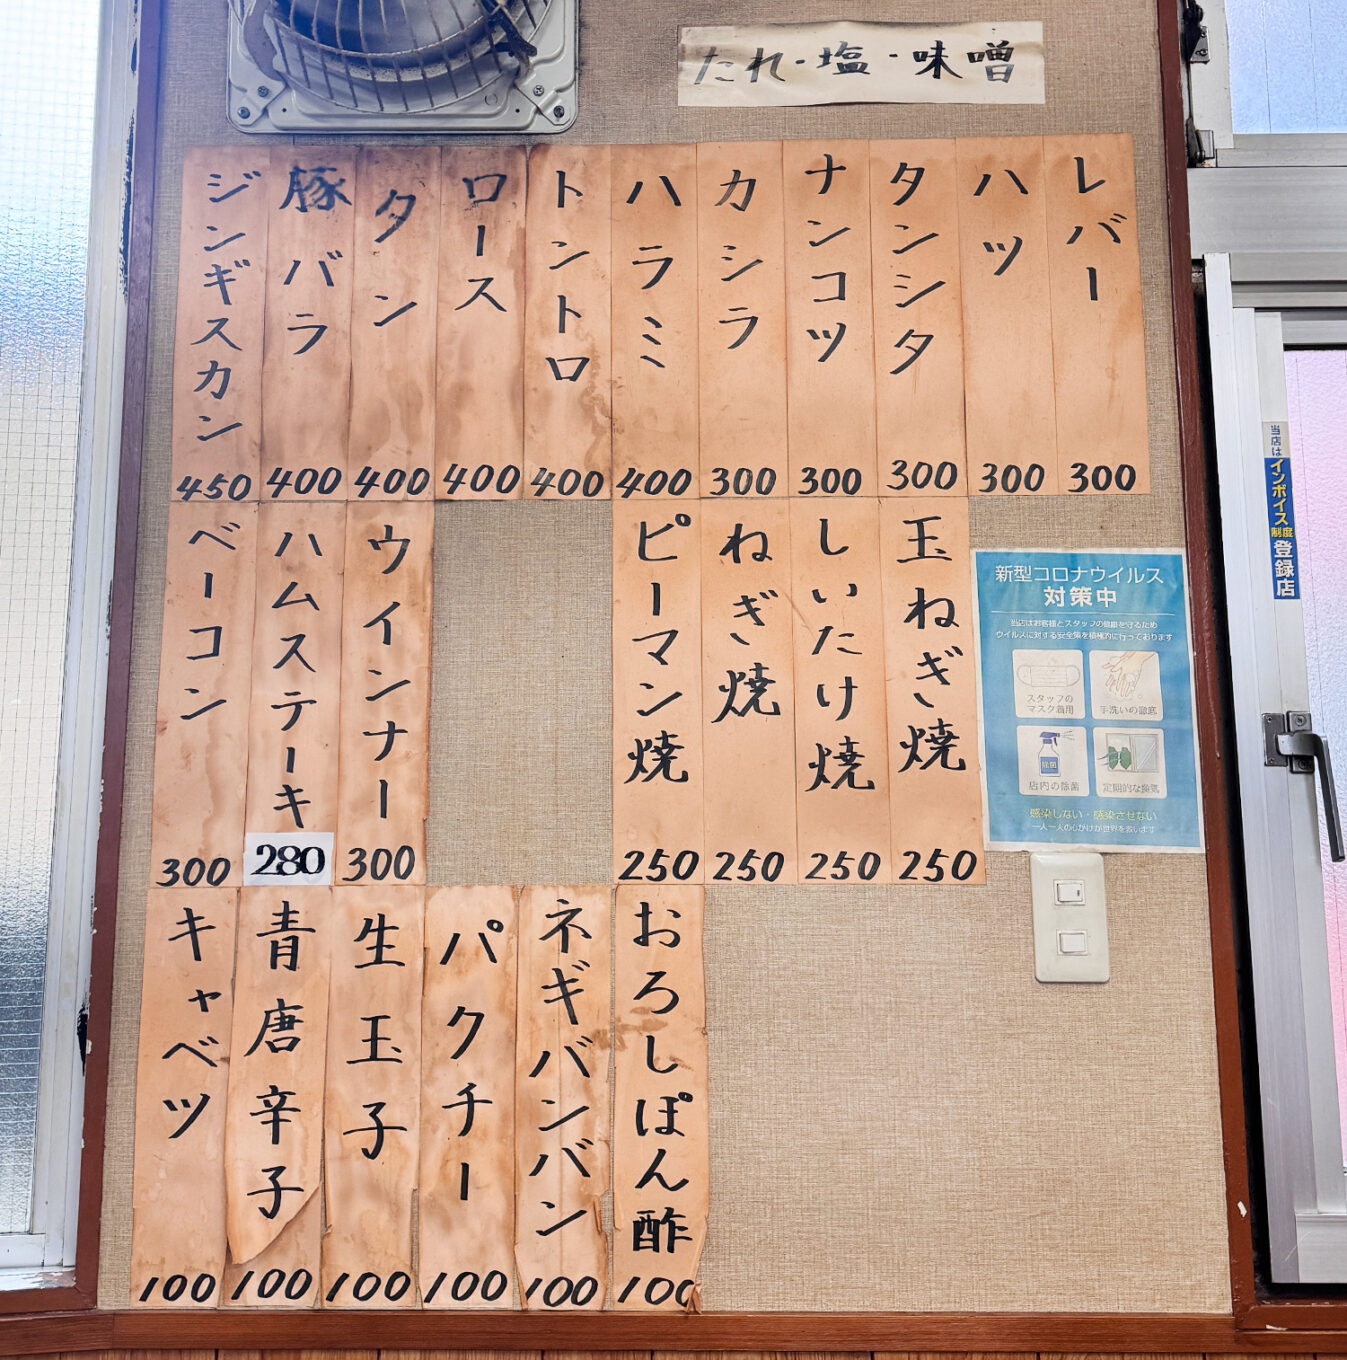 たれ・塩・味噌
レバー 300
ハツ 300
タンシタ 300
ナンコツ 300
カシラ 300
ハラミ 400
トントロ 400
ロース 400
タン 400
豚バラ 400
ジンギスカン 450
玉ねぎ焼 250
しいたけ焼 250
ねぎ焼 250
ピーマン焼 250
ウインナー 300
ハムステーキ 280
ベーコン 300
おろしぽん酢 100
ネギバンバン 100
パクチー 100
生玉子 100
青唐辛子 100
キャベツ 100
新型コロナウイルス
対策中
当店はお客様とスタッフの健康を守るため
ウイルスに対する安全策を積極的に行っております
スタッフの
マスク着用
手洗いの徹底
除菌
店内の除菌
定期的な換気
感染しない・感染させない
一人一人の心がけが世界を救います
当店は
インボイス
制度
登録店